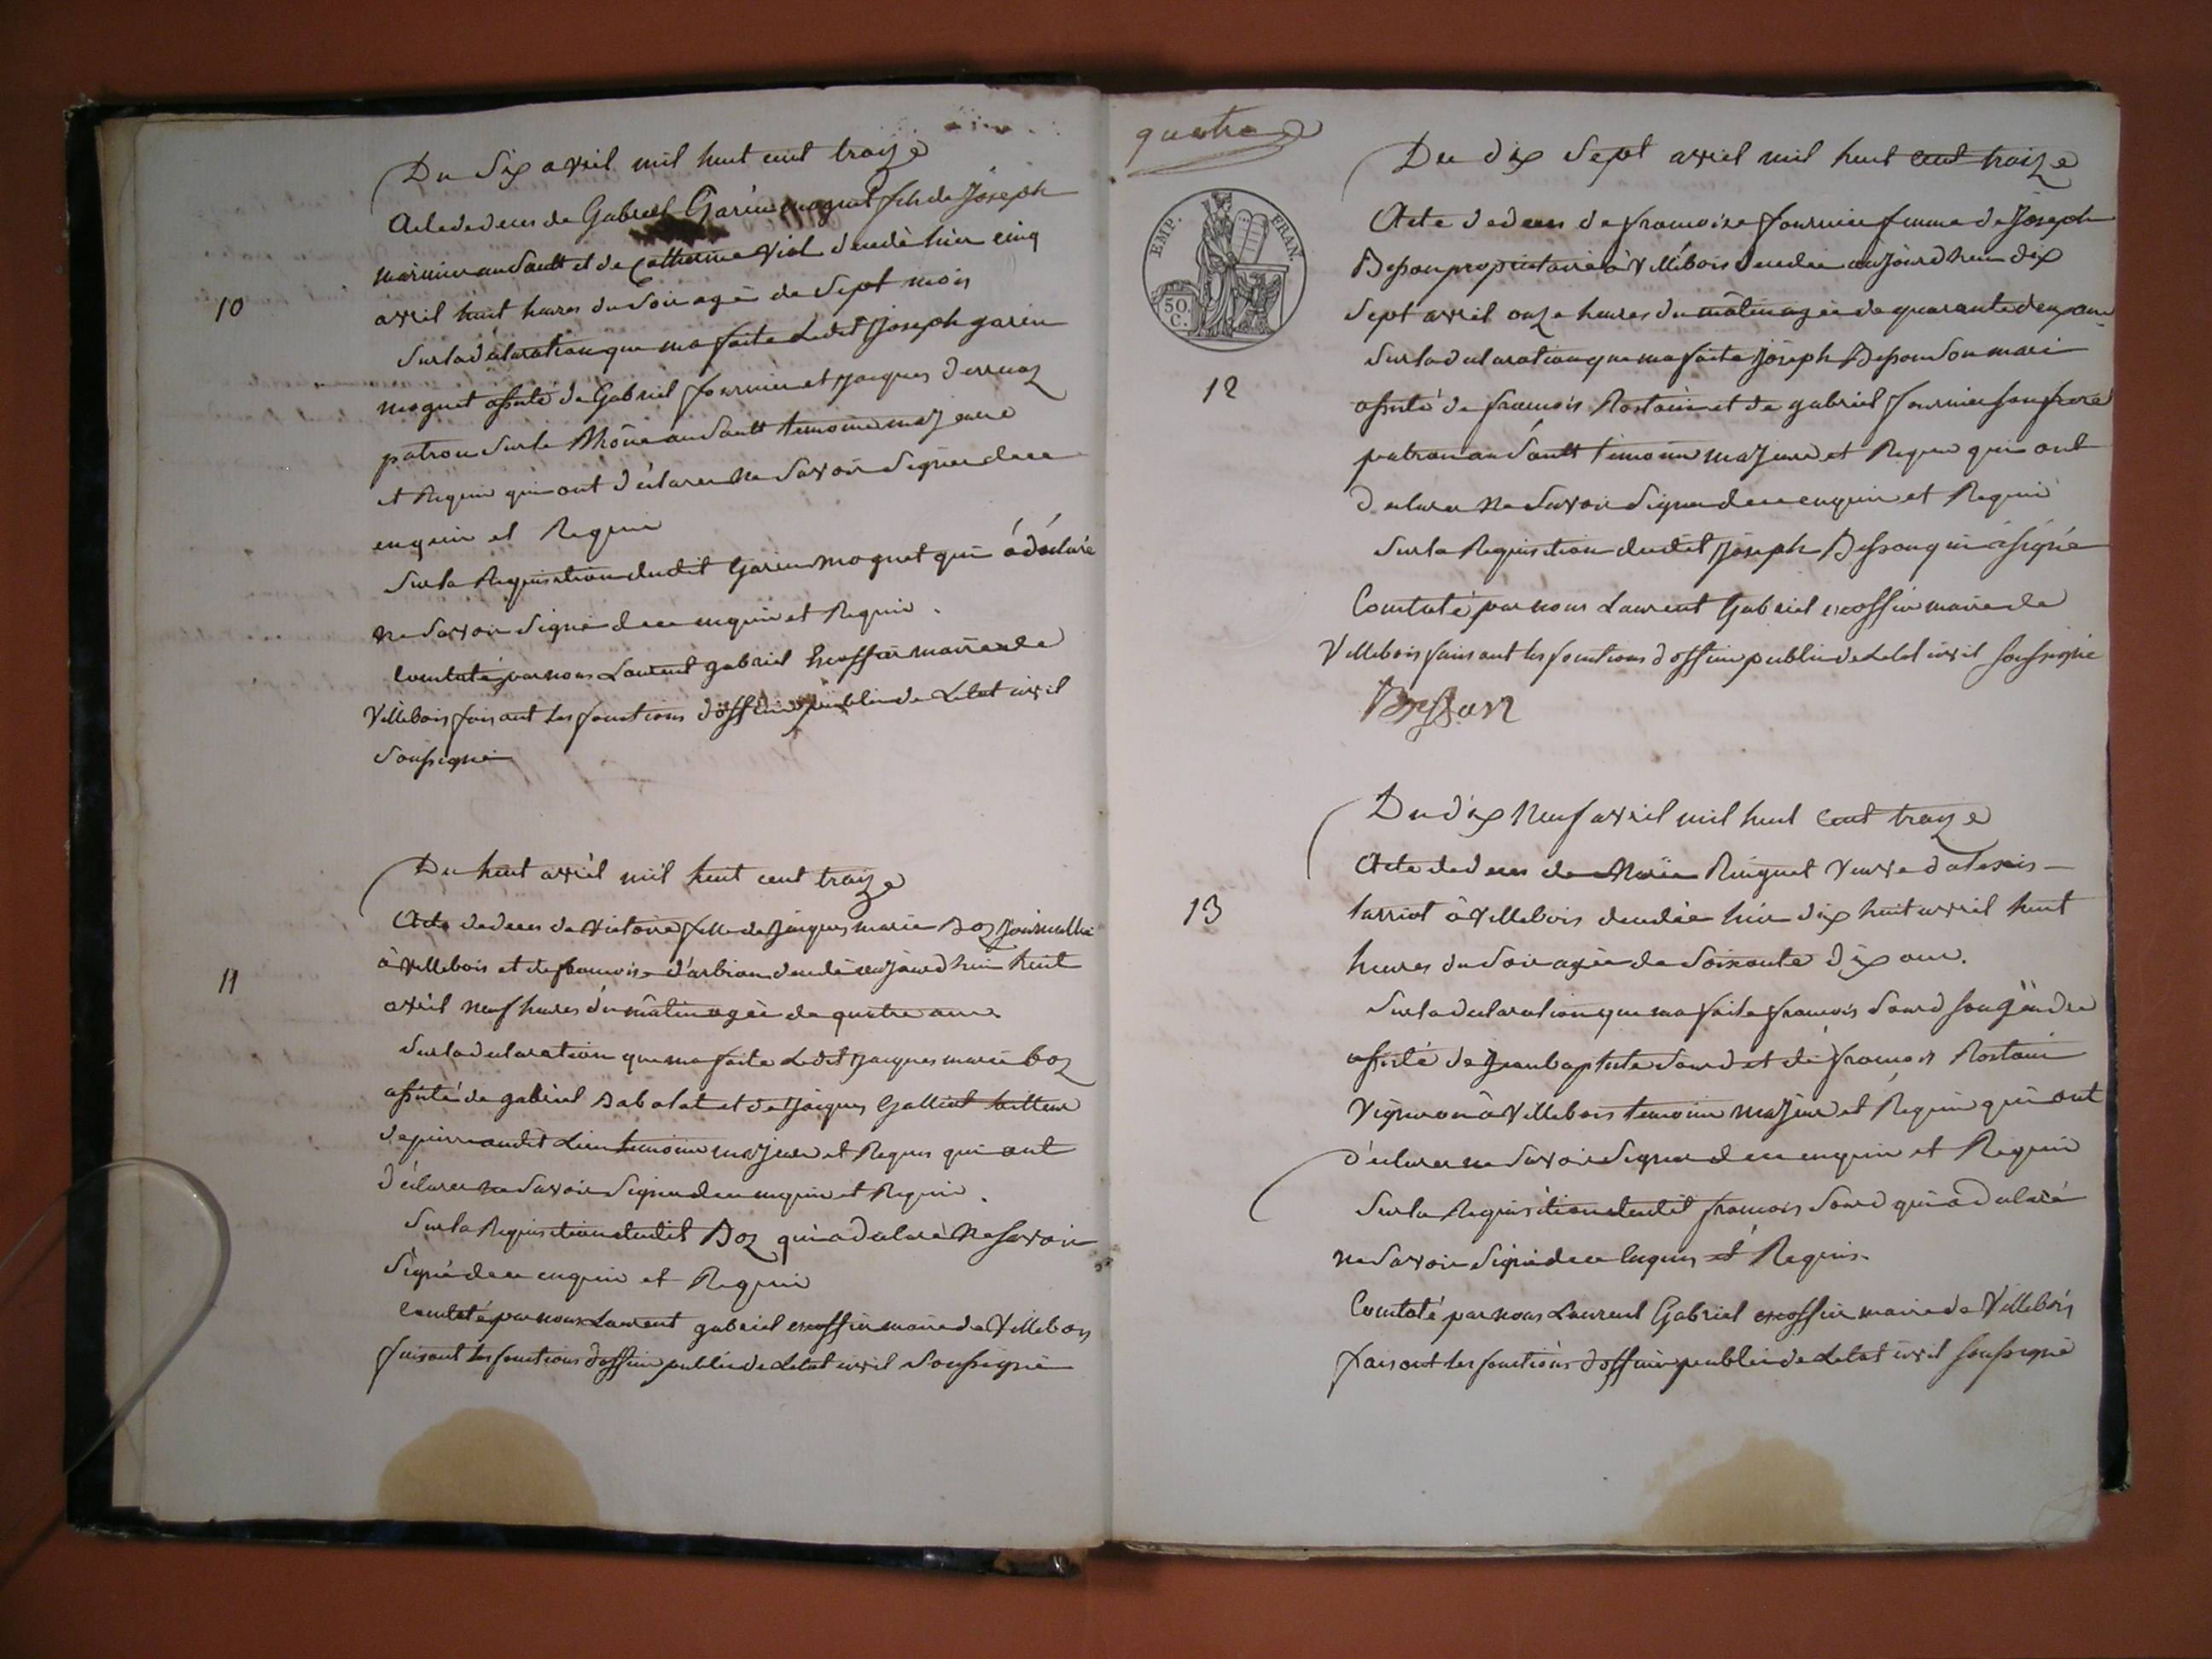 10
Du Six avril mil huit cent traize
Acte de deces de Gabriel Garin moguet fils de Joseph
marinier au Sault et de Catherine Viol decedé hier cinq
avril huit heures du Soir agé de Sept mois
Sur la déclaration que ma faite Ledit Joseph garin
moguet assisté de Gabriel fournier et Jacques
patron Sur le Rhône au Sault temoins majeure
et Requis qui ont déclarer ne Savoir Signer de ce
enquis et Requis
Sur la Requisition dudit Garin moguet qui à déclaré
ne Savoir Signé de ce enquis et Requis.
Constaté par nous Laurent gabriel Escoffier maire de
Villebois faisant les fonctions d'officier public de Letat civil
Soussigné
11
Du huit avril mil huit cent traize
Acte de deces de Victoire fille de Jacques marie Boz Journallié
à Villebois et de françoise d'arbion decedé aujourdhui huit
avril neuf heures du mâtin agée de quatre ans
Sur la declaration que ma faite Ledit Jacques marie boz
assisté de gabriel Babolat et de Jacques Galliot tailleur
de pierre audit Lieu temoins majeur et Requis qui ont
déclarer ne Savoir Signer de ce enquis et Requis.
Sur la Requisition dudit Boz qui à declaré Ne savoir
Signé de ce enquis et Requis
Constaté par nous Laurent gabriel escoffier maire de Villebois
faisant les fonctions d'officier public de Letat civil Soussigné
quatre
EMP. FRAN.
50 C.
12
Du dix Sept avril mil huit cent traize
Acte de deces de francoise fournier femme de Joseph
Besson proprietaire à Villebois decedée aujourdhui dix
Sept avril onze heures du mâtin agée de quarante deux ans
Sur la declaration que ma faite Joseph Besson Son mari
assisté de francois Rostain et de gabriel fournier son frere
patron au Sault temoins majeure et Requis qui ont
declarer ne Savoir Signer de ce enquis et Requis
Sur la Requisition dudit Joseph Besson qui à signé
Constaté par nous Laurent Gabriel escoffier maire de
Villebois faisant les fonctions d'officier public de Letat civil soussigné
Besson
13
Du dix Neuf avril mil huit cent traize
Acte de deces de Marie Ringuet Veuve d'alexis
tarriot à Villebois decedée hier dix huit avril huit
heures du Soir agée de Soixante dix ans.
Sur la declaration que ma faite francois Sourd son gendre
assisté de Jean baptiste Sourd et de francois Rostain
Vigneron à Villebois temoins majeur et Requis qui ont
déclarer ne Savoir Signer de ce enquis et Requis
Sur la Requisition dudit francois Sourd qui à declaré
ne Savoir Signé de ce Enquis et Requis.
Constaté par nous Laurent Gabriel escoffier maire de Villebois
faisant les fonctions d'officier public de Letat civil soussigné